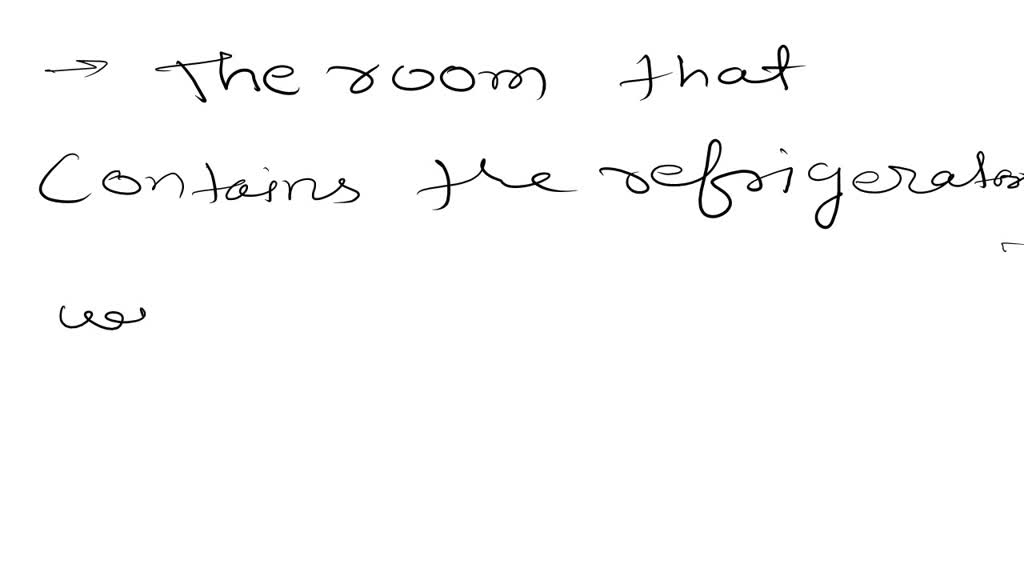 → The room that
Contains the refrigerator